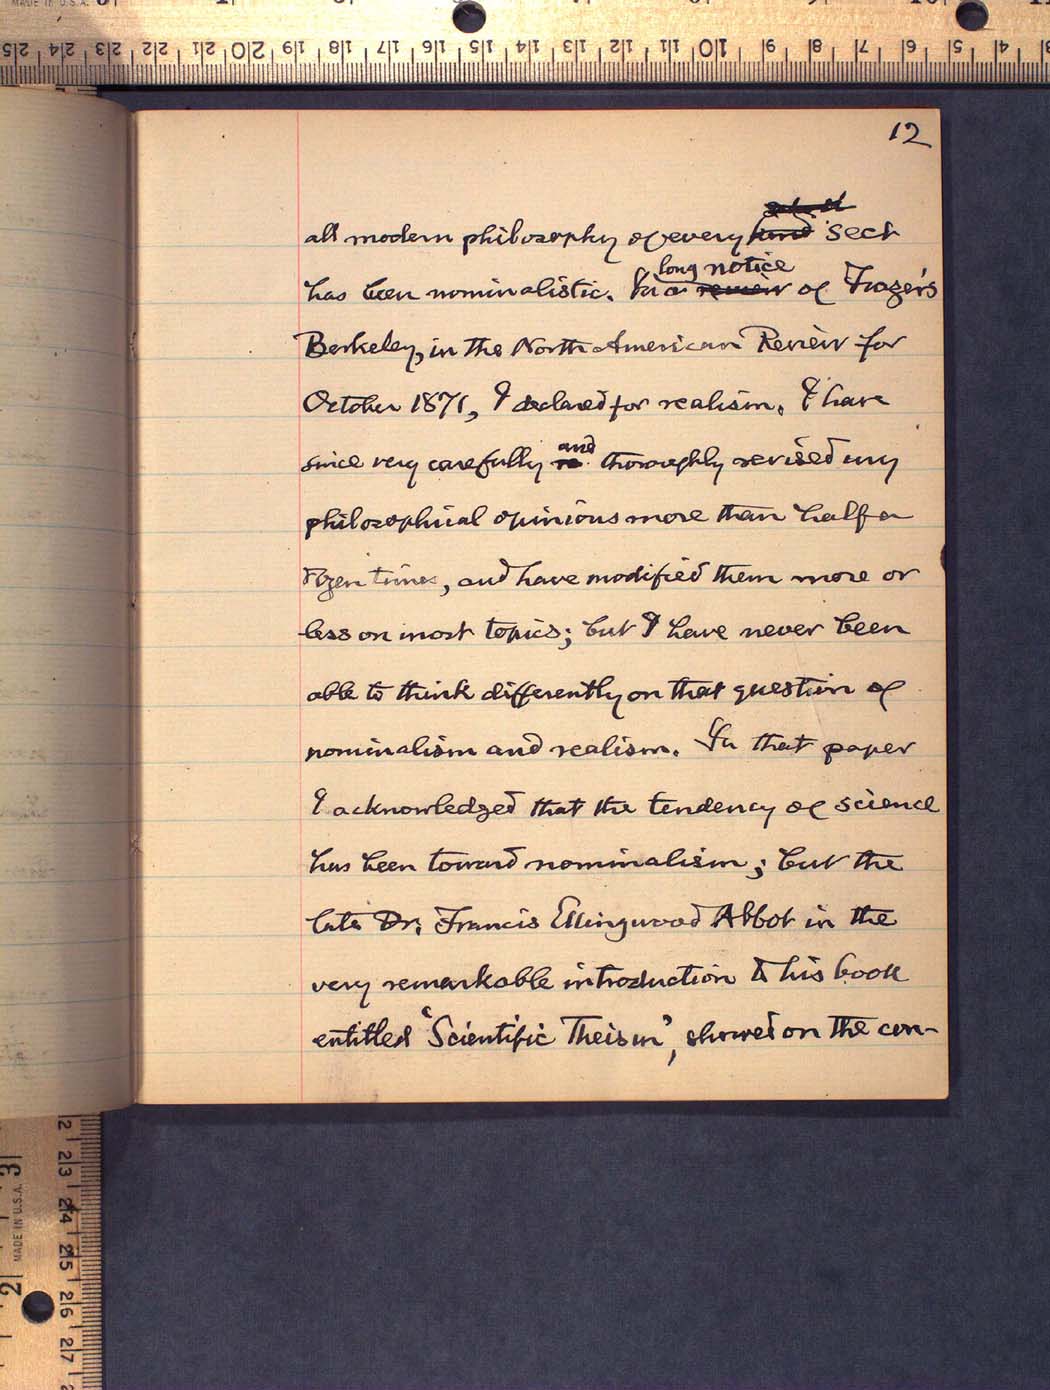 12
all modern philosophy of every kind sect
long notice
has been nominalistic. In a review of Frazer's
Berkeley, in the North American Review for
October 1871, I declared for realism. I have
and
since very carefully re thoroughly revised my
philosophical opinions more than half a
dozen times, and have modified them more or
less on most topics; but I have never been
able to think differently on that question of
nominalism and realism. In that paper
I acknowledged that the tendency of science
has been toward nominalism; but the
late Dr. Francis Ellingwood Abbot in the
very remarkable introduction to his book
entitled "Scientific Theism", showed on the con-
MADE IN U.S.A.
25 24 23 22 21 20 19 18 17 16 15 14 13 12 11 10 9 8 7 6 5 4 3
MADE IN U.S.A.
2 3
23 24 25 26 27